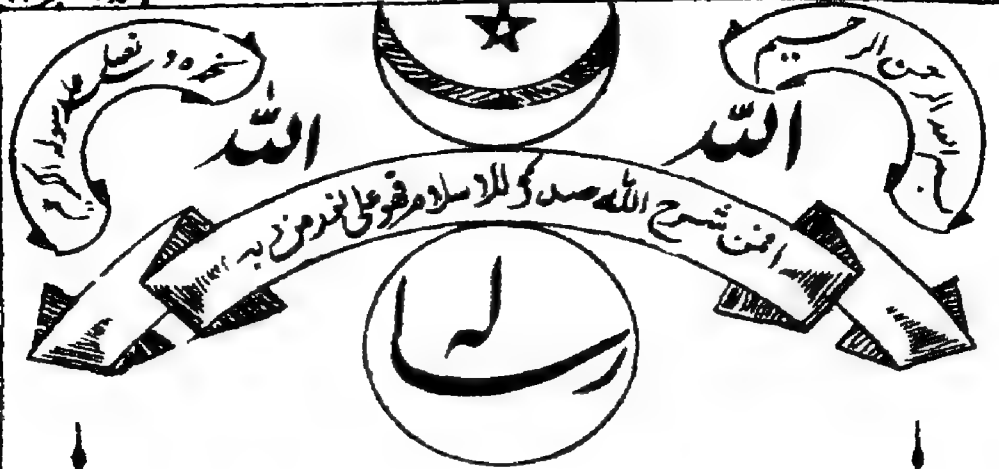 بسم الله الرحمن الرحیم
نحمده و نصلی علی رسوله الکریم
الله
الله
افمن شرح الله صدره للاسلام فهو علی نور من ربه
رساله